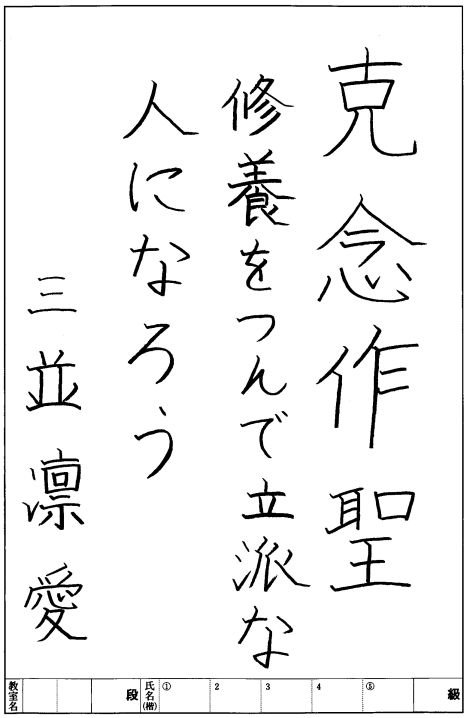 克念作聖
修養をつんで立派な
人になろう
三並凛愛
教室名 段 氏名(楷) ① 2 3 4 ⑤ 級